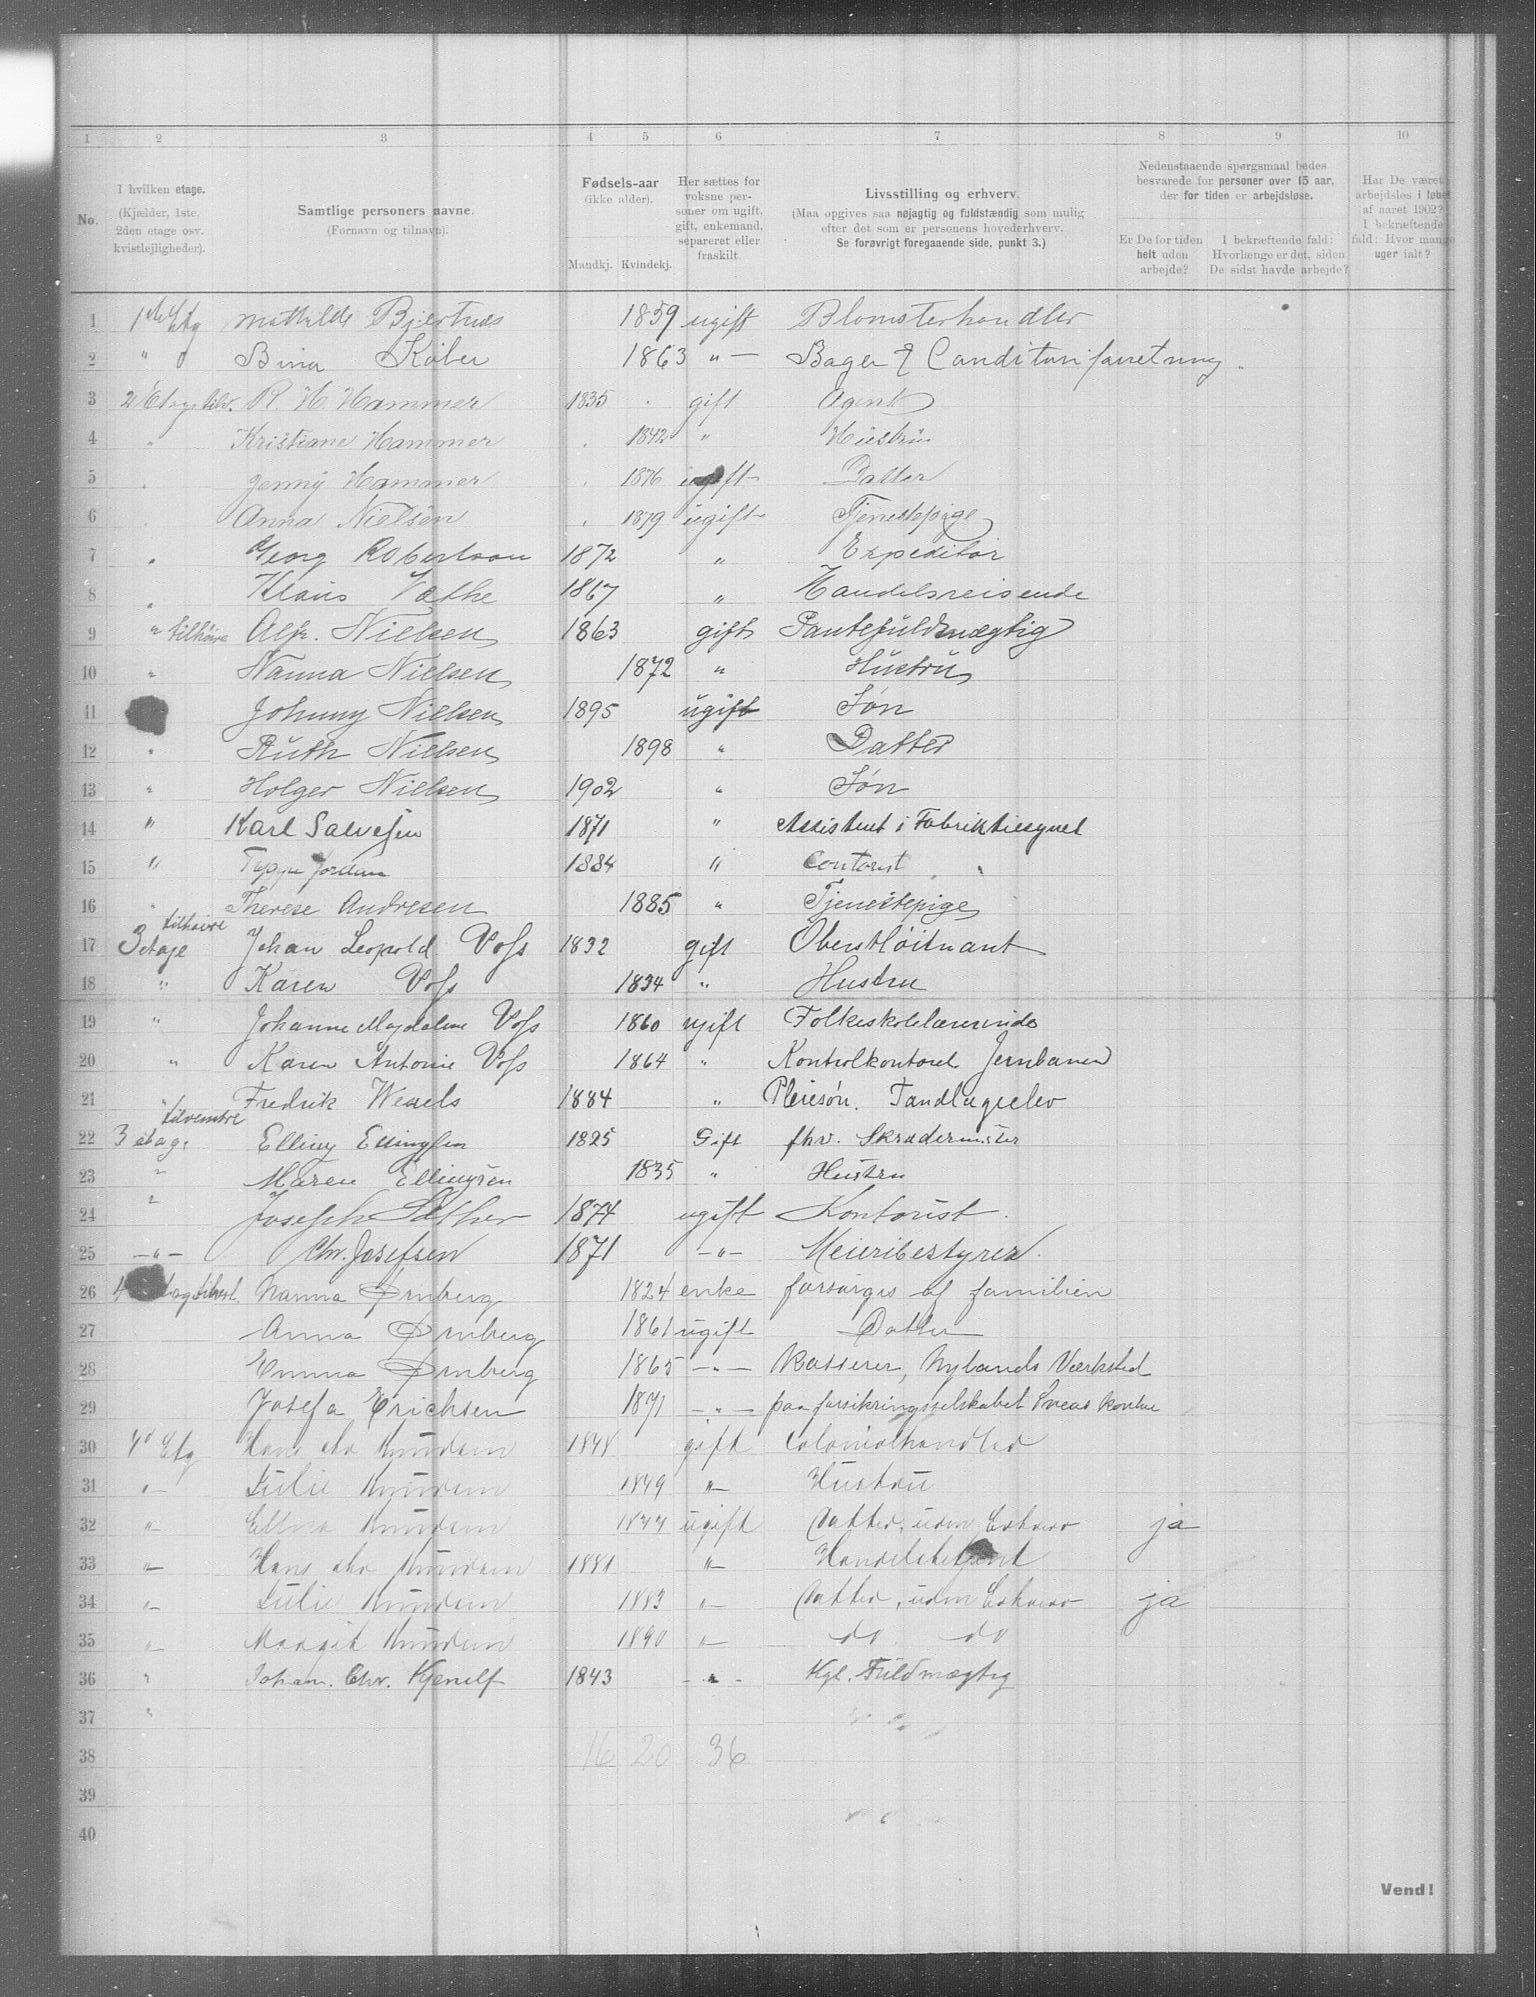 1 2 3 4 5 6 7 8 9 10
No.
I hvilken etage. (Kjælder, 1ste, 2den etage osv. kvistlejligheder).
Samtlige personers navne. (Fornavn og tilnavn).
Fødsels-aar (ikke alder). Mandkj. Kvindekj.
Her sættes for voksne personer om ugift, gift, enkemand, separeret eller fraskilt.
Livsstilling og erhverv. (Maa opgives saa nøjagtig og fuldstændig som mulig efter det som er personens hovederhverv. Se forøvrigt foregaaende side, punkt 3.)
Nedenstaaende spørgsmaal bedes besvarede for personer over 15 aar, der for tiden er arbejdsløse.
Er De for tiden helt uden arbejde?
I bekræftende fald: Hvorlænge er det, siden De sidst havde arbejde?
Har De været arbejdsløs i løbet af aaret 1902? I bekræftende fald: Hvor mange uger ialt?
1 1ste Etg Mathilde Bjertnæs 1859 ugift Blomsterhandler
2 " Bina Køber 1863 " — Bager & Conditoriforretning.
3 2 Etage tilv. R. H. Hammer 1835 gift Agent
4 " Kristiane Hammer 1842 " Hustru
5 " Jenny Hammer 1876 ugift Datter
6 Anna Nielsen 1879 ugift Tjenestepige
7 " Georg Robertson 1872 " Expeditør
8 " Klaus Vathe 1867 " Handelsreisende
9 " tilhøire Alfr. Nielsen 1863 gift Pantefuldmægtig
10 " Nanna Nielsen 1872 " Hustru
11 Johnny Nielsen 1895 ugift Søn
12 " Ruth Nielsen 1898 " Datter
13 " Holger Nielsen 1902 " Søn
14 " Karl Salvesen 1871 " Assistent i Fabriktilsynet
15 " Jordan 1884 " Contorist
16 " Therese Andresen 1885 " Tjenestepige
17 3 etage tilhøire Johan Leopold Voss 1832 gift Oberstløitnant
18 " Karen Voss 1834 " Hustru
19 " Johanne Magdalene Voss 1860 ugift Folkeskolelærerinde
20 " Karen Antonie Voss 1864 " Kontrolkontoret Jernbanen
21 " Fredrik Wessels 1884 " Pleiesøn. Tandlægeelev
22 3 etage tilvenstre Elling Ellingsen 1825 Gift fhv. Skrædermester
23 " Maren Ellingsen 1835 " Hustru
24 " Joseph Sæther 1874 ugift Kontorist.
25 —"— Chr. Josefsen 1871 —"— Meieribestyrer.
26 4 Etag tilvenst. Nanna Ørnberg 1824 enke forsørges af familien
27 Anna Ørnberg 1861 ugift Datter
28 Emma Ørnberg 1865 —"— Kasserer, Nylands Værksted
29 Josefa Erichsen 1871 —"— paa forsikringsselskabet Sveas kontor
30 4d Etg Hans Knudsen 1848 gift Colonialhandler
31 "— Julie Knudsen 1849 "— Hustru
32 "— Knudsen 1877 ugift Datter, uden Erhverv ja
33 "— Hans Knudsen 1881 "— Handelsbetjent
34 "— Julie Knudsen 1883 "— Datter, uden Erhverv ja
35 "— Margit Knudsen 1890 "— do do
36 " Johan. Chr. 1843 —"— Kgl. Fuldmægtig
37 "
38 16 20 36
39
40
Vend!